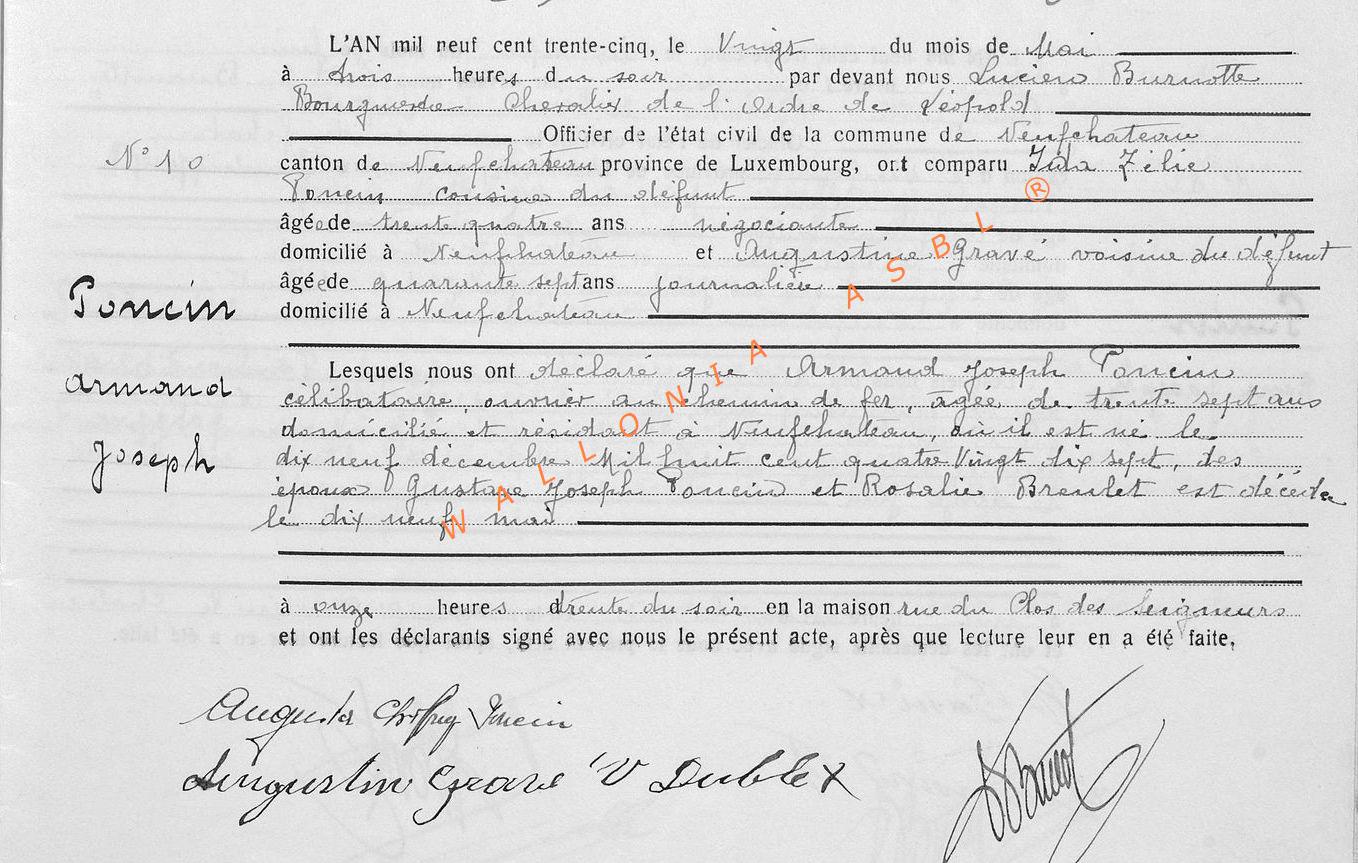 L'AN mil neuf cent trente-cinq, le Vingt du mois de Mai
à trois heures du soir par devant nous Lucien Burnotte
Bourgmestre Chevalier de l'Ordre de Léopold
Officier de l'état civil de la commune de Neufchateau
N° 10
canton de Neufchateau province de Luxembourg, ont comparu Ida Zélie
Poncin cousine du défunt
âgée de trente quatre ans négociante
domicilié à Neufchateau et Augustine Gravé voisine du défunt
âgée de quarante sept ans journalière
domicilié à Neufchateau
Poncin
Armand
Joseph
Lesquels nous ont déclaré que Armand Joseph Poncin
célibataire, ouvrier au chemin de fer, agée de trente sept ans
domicilié et résidant à Neufchateau, où il est né le
dix neuf décembre Mil huit cent quatre Vingt dix sept, des
époux Gustave Joseph Poncin et Rosalie Breulet est décédé
le dix neuf mai
à onze heures trente du soir en la maison rue du Clos des Seigneurs
et ont les déclarants signé avec nous le présent acte, après que lecture leur en a été faite,
Poncin
Augustin Gravé V Dublex
WALLONIA ASBL ®